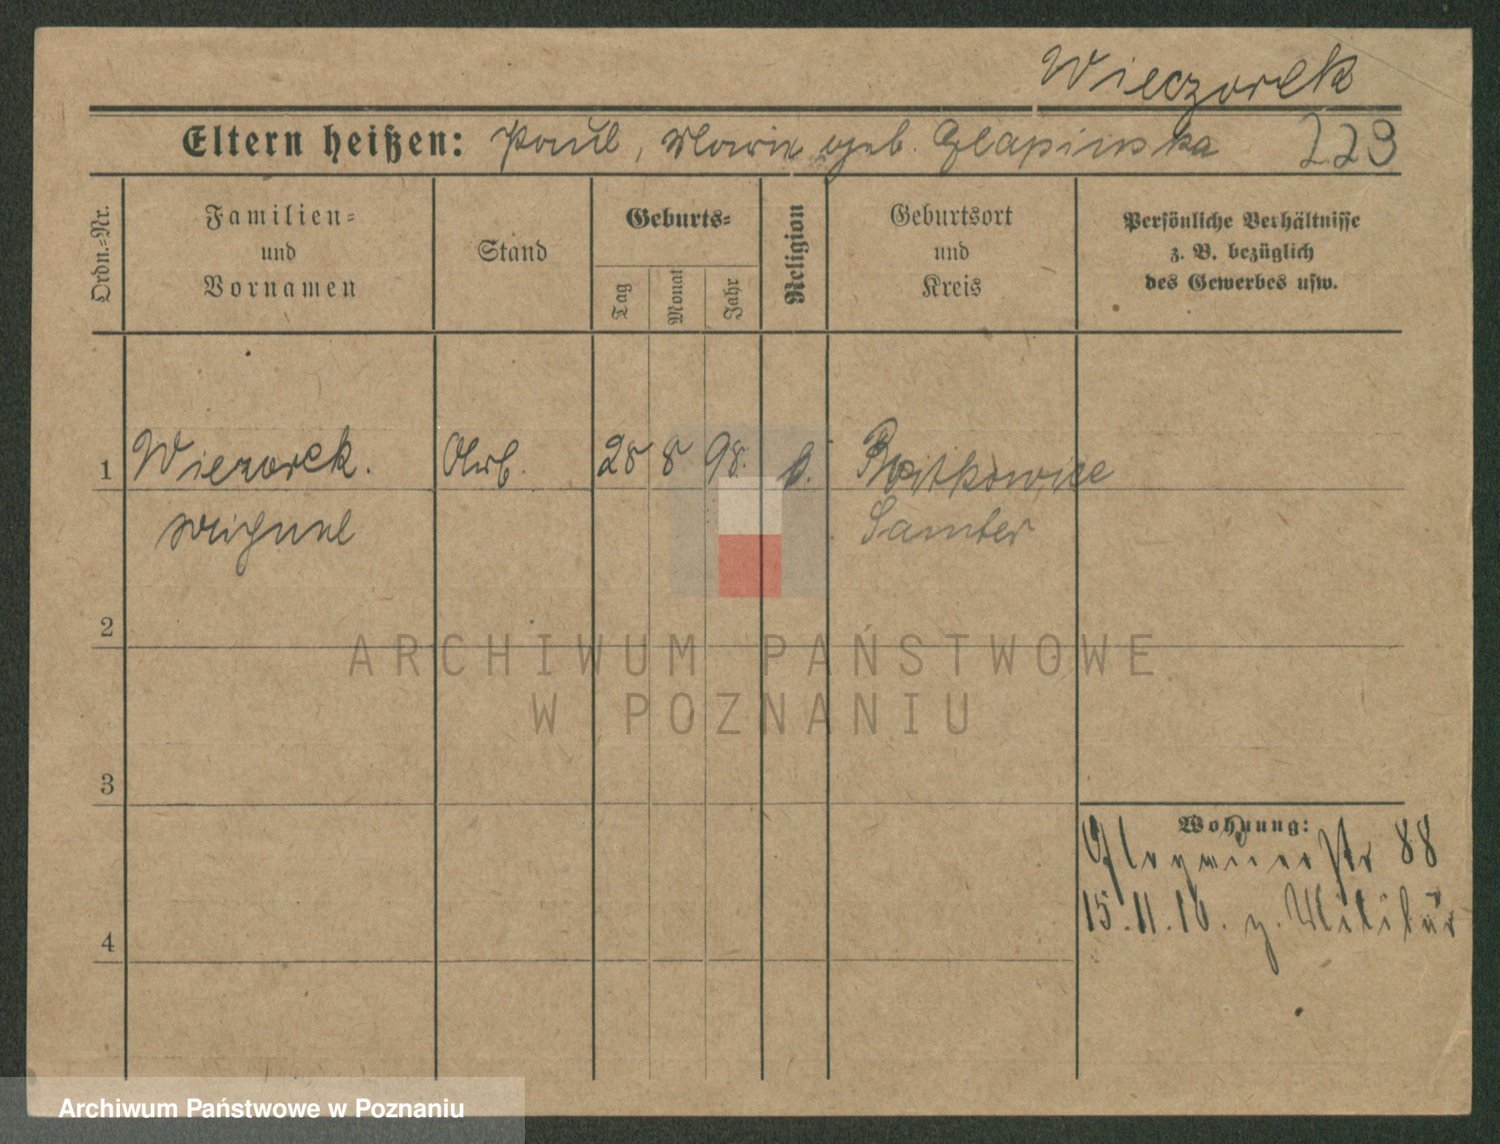 Wieczorek
Eltern heißen: Paul, Marie geb. Glapinska 223
Ordn.=Nr.
Familien=
und
Vornamen
Stand
Geburts=
Tag
Monat
Jahr
Religion
Geburtsort
und
Kreis
Persönliche Verhältnisse
z. B. bezüglich
des Gewerbes usw.
1 Wiezorek. Arb. 28 8 98. k.
Samter
2
3
4
Wohnung:
88
15.11.16. z. Militär
ARCHIWUM PAŃSTWOWE
W POZNANIU
Archiwum Państwowe w Poznaniu